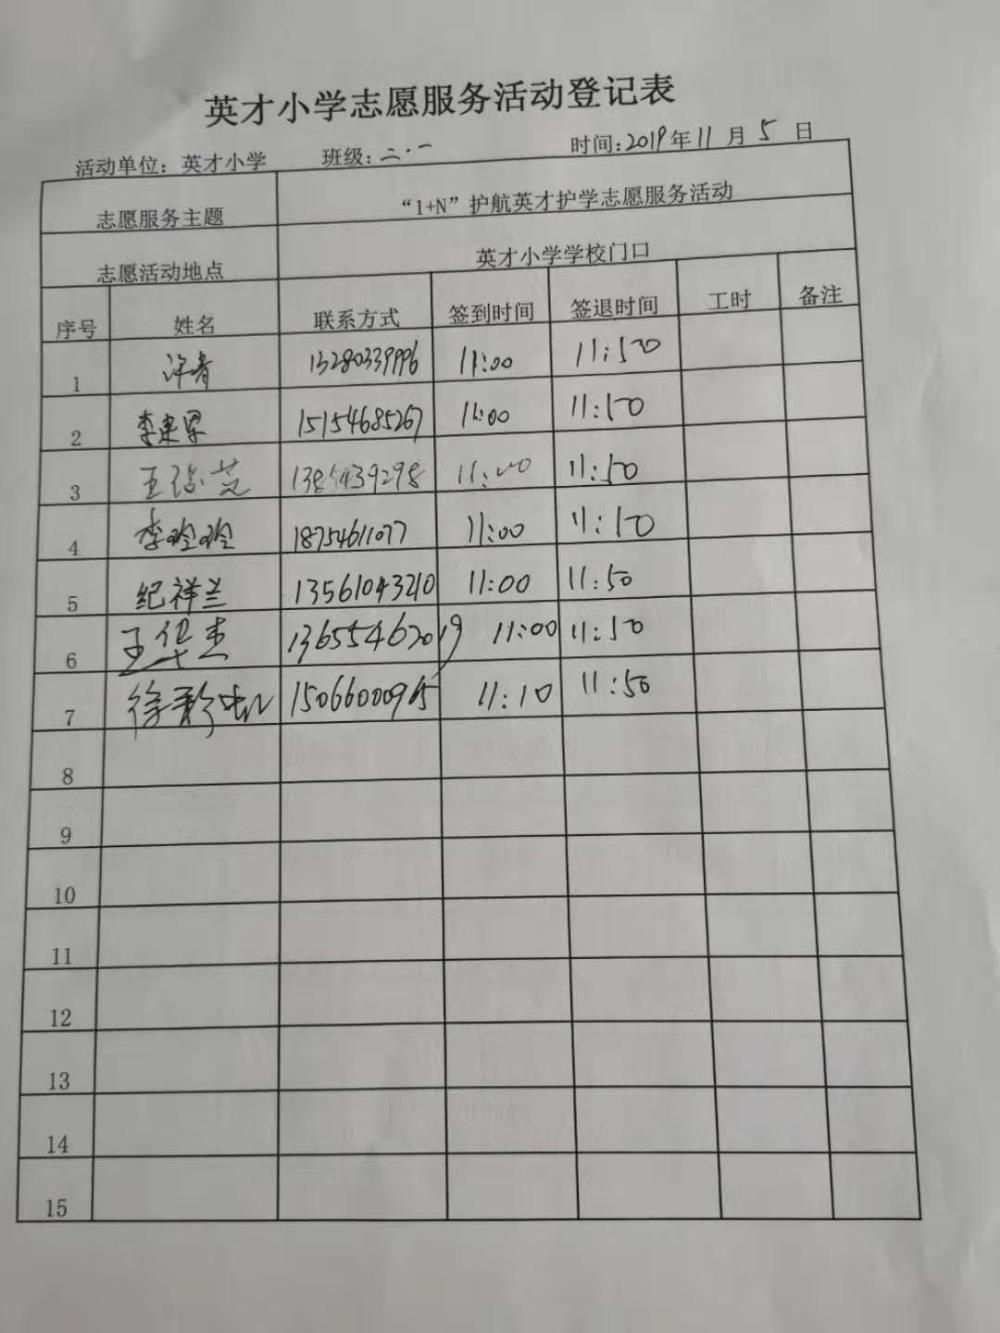 英才小学志愿服务活动登记表
活动单位：英才小学 班级：二·一 时间：2019年11月5日
志愿服务主题 “1+N”护航英才护学志愿服务活动
志愿活动地点 英才小学学校门口
序号 姓名 联系方式 签到时间 签退时间 工时 备注
1 许青 13280339996 11:00 11:50
2 李建军 15154685267 11:00 11:50
3 11:00 11:50
4 李玲玲 18754611077 11:00 11:50
5 纪祥兰 13561043210 11:00 11:50
6 王华杰 13655462019 11:00 11:50
7 11:10 11:50
8
9
10
11
12
13
14
15